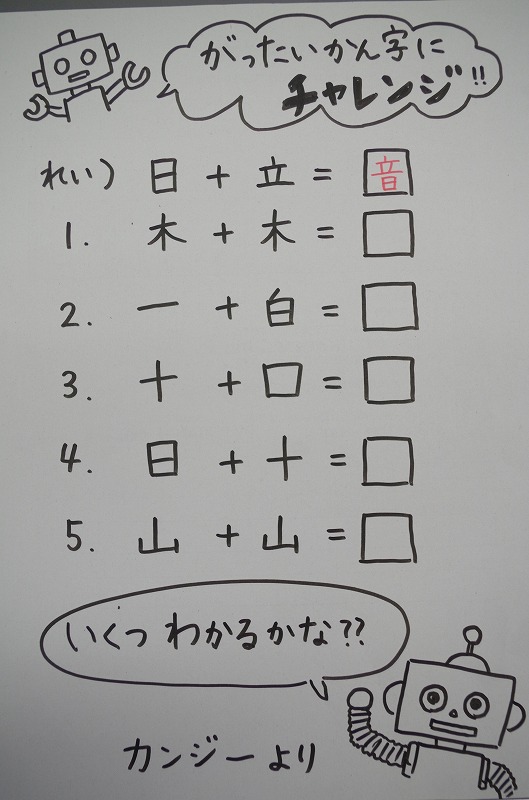 がったいかん字に
チャレンジ!!
れい) 日 + 立 = 音
1. 木 + 木 = 
2. 一 + 白 = 
3. 十 + 口 = 
4. 日 + 十 = 
5. 山 + 山 = 
いくつ わかるかな??
カンジーより